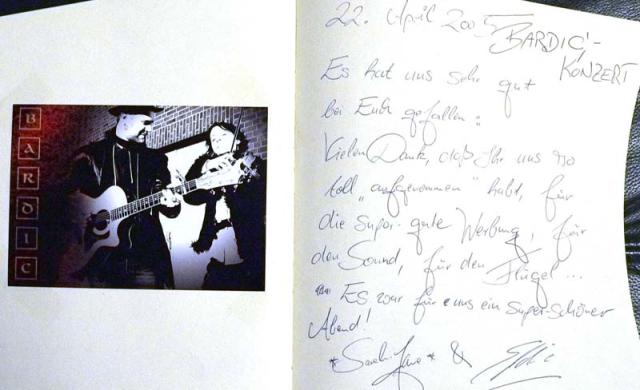 BARDIC
22. April 2005
BARDIC-
KONZERT
Es hat uns sehr gut
bei Euch gefallen.
Vielen Dank, daß Ihr uns so
toll "aufgenommen" habt, für
die super-gute Werbung, für
den Sound, für den Flügel...
Es war für uns ein super-schöner
Abend!
*Sarah-Jane* &